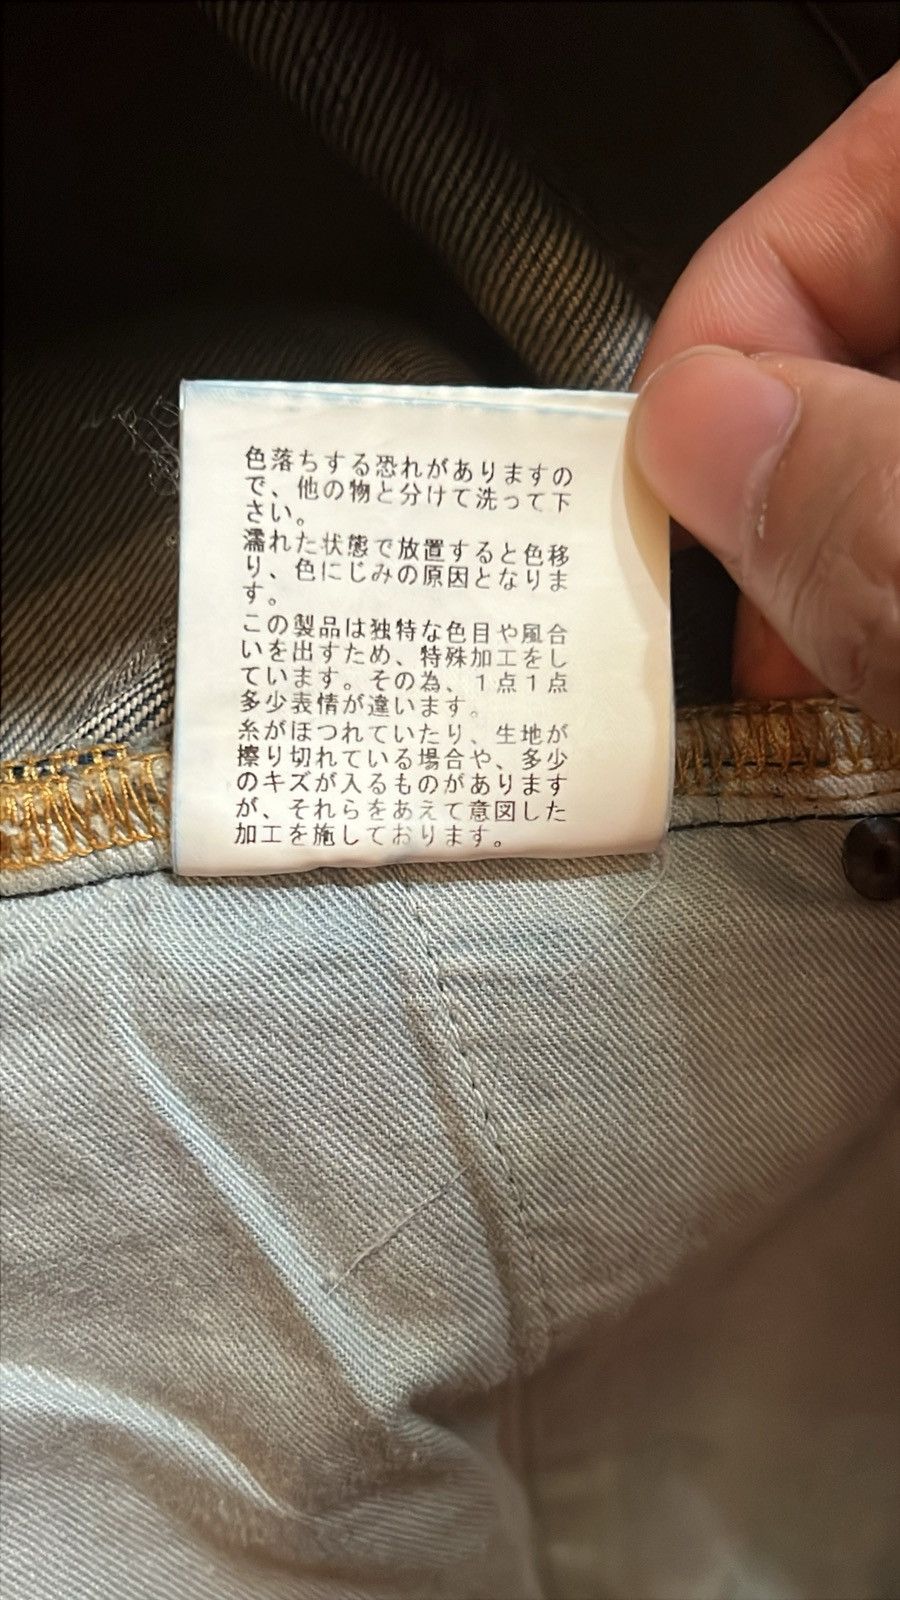 色落ちする恐れがありますの
で、他の物と分けて洗って下
さい。
濡れた状態で放置すると色移
り、色にじみの原因となりま
す。
この製品は独特な色目や風合
いを出すため、特殊加工をし
ています。その為、１点１点
多少表情が違います。
糸がほつれていたり、生地が
擦り切れている場合や、多少
のキズが入るものがあります
が、それらをあえて意図した
加工を施しております。